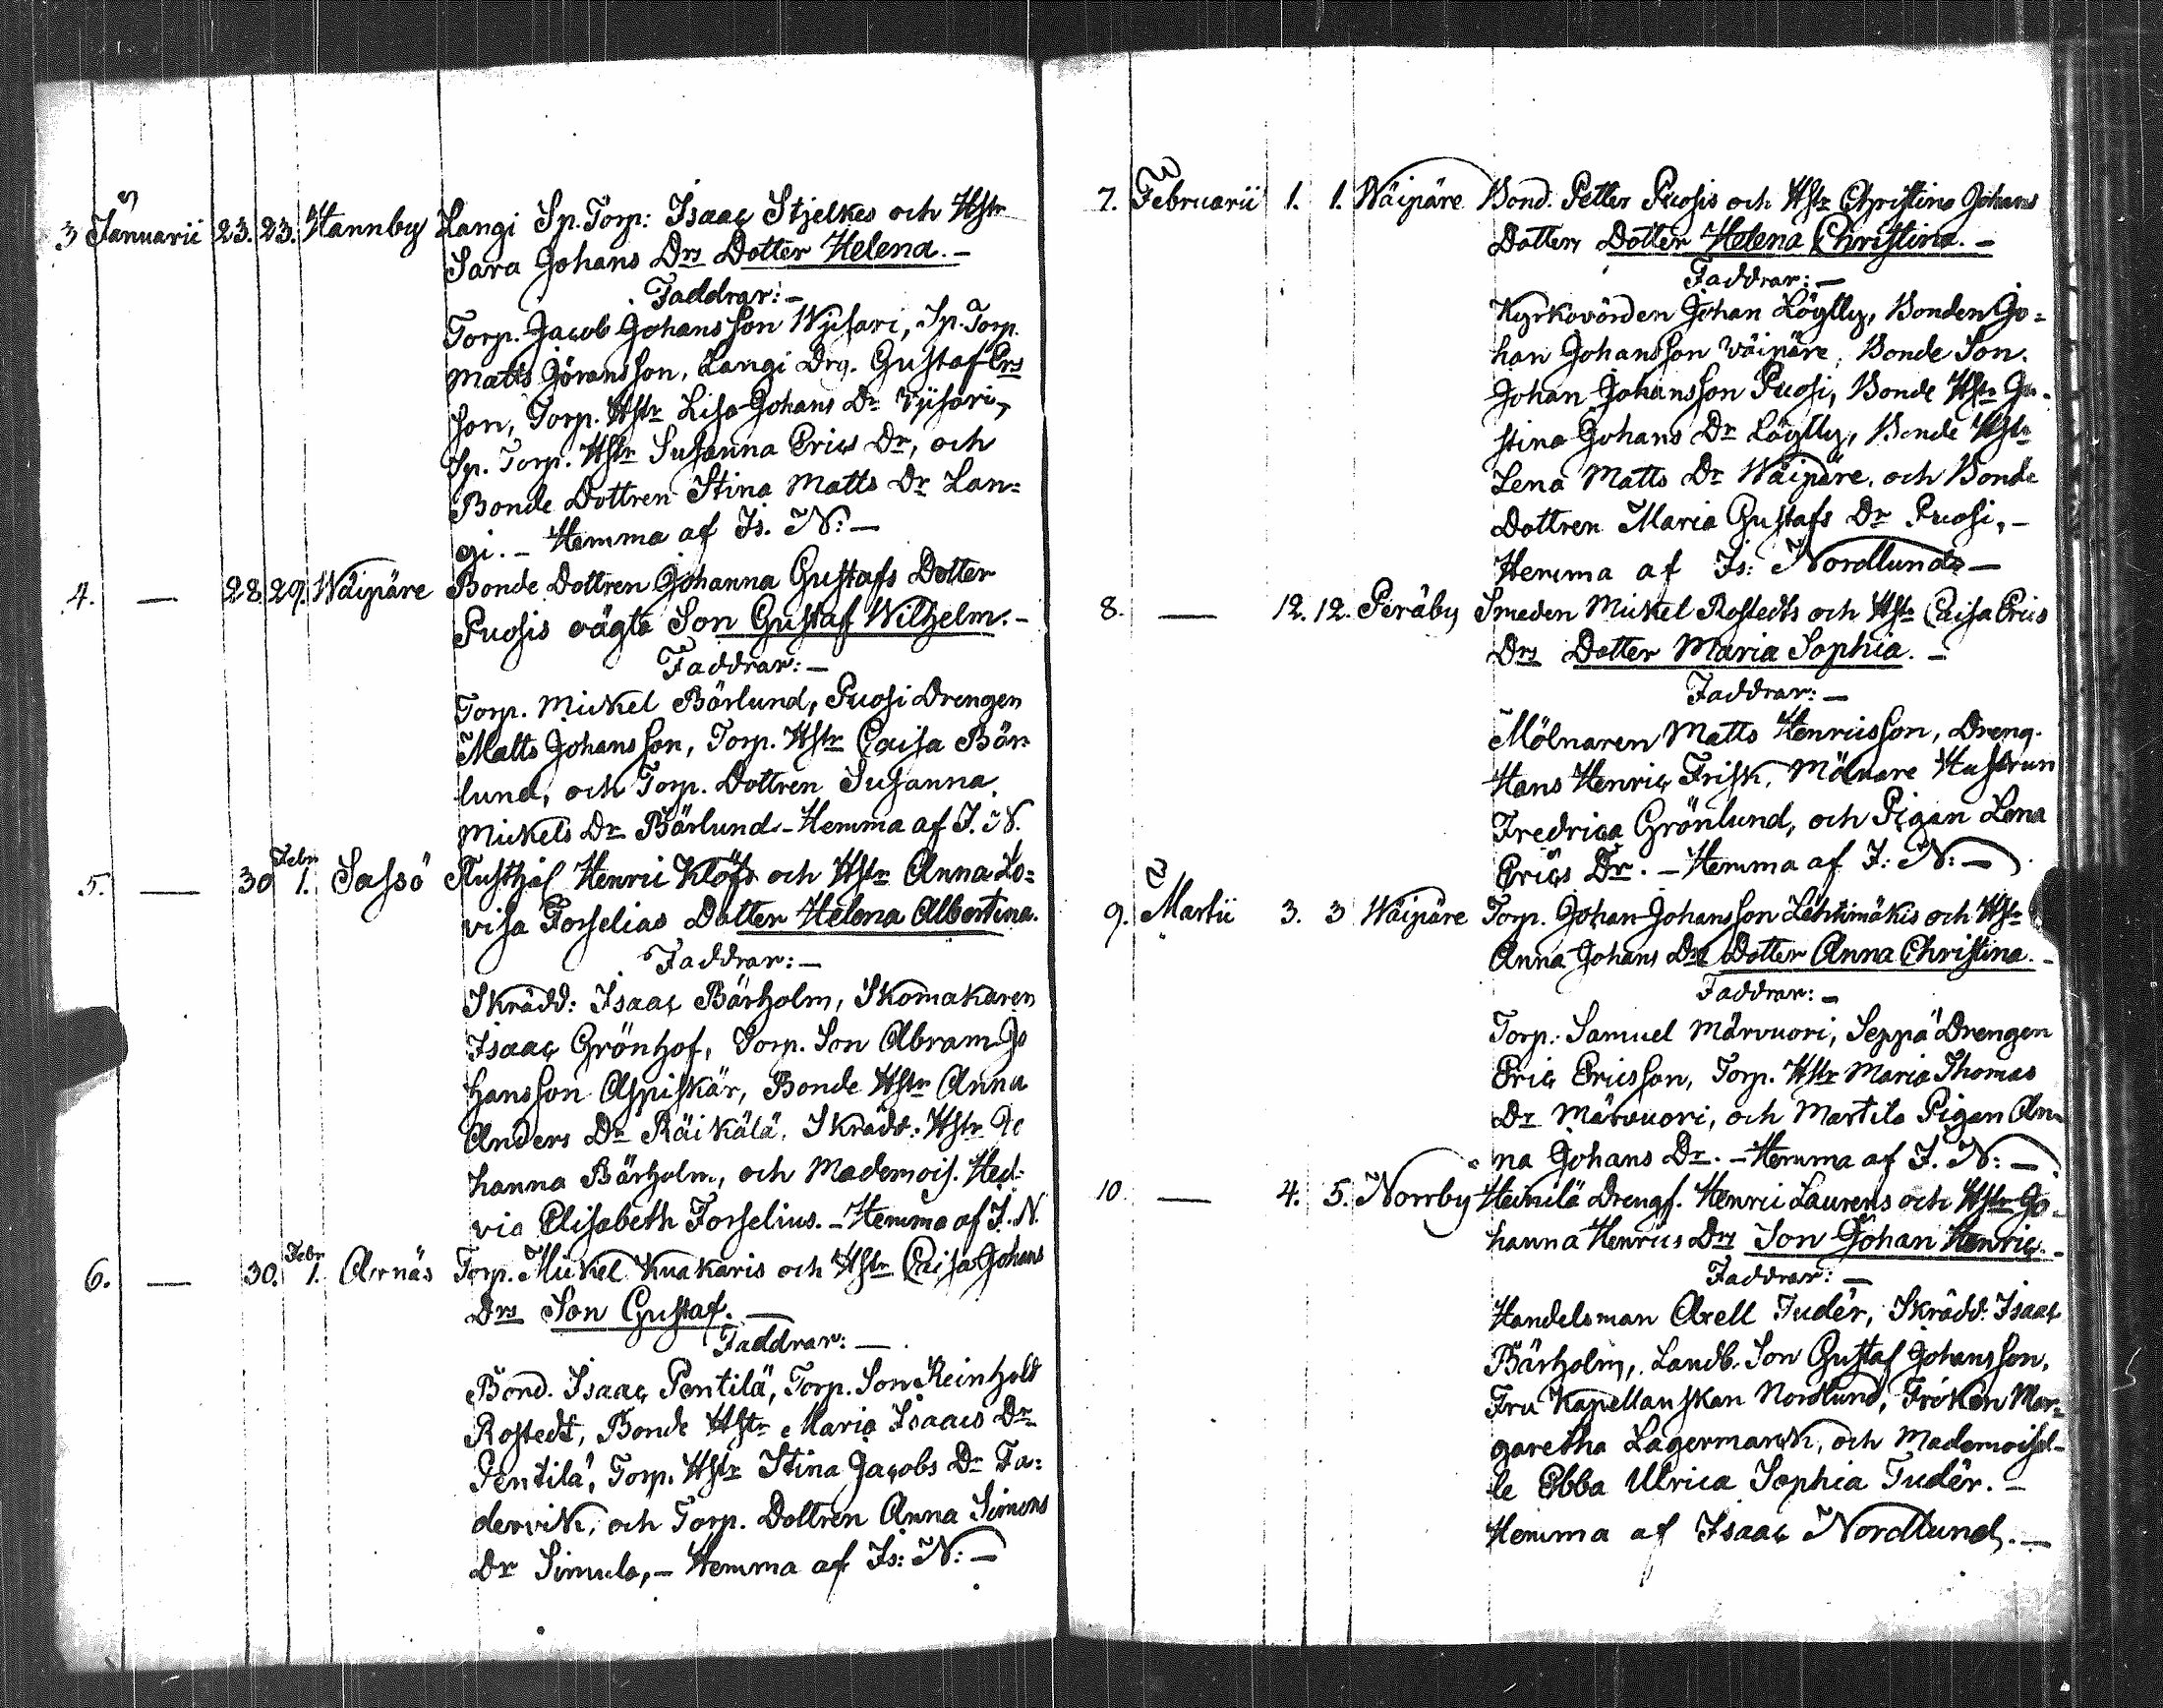 3 Januarii 23. 23. Hannby Langi Sp. Torp: Isaac Stjelkes och Hstr
Sara Johans Drs Dotter Helena. –
Faddrar: –
Torp. Jacob Johansson Wijsari, Sp. Torp.
Matts Göransson, Langi Drg. Gustaf Ers
son, Torp. Hstr Lisa Johans Dr Vijsari,
Sp. Torp. Hstr Susanna Erics Dr, och
Bonde Dottren Stina Matts Dr Lan=
gi. – Hemma af Is. N: –
4. — 28. 29. Wäipäre Bonde Dottren Johanna Gustafs Dotter
Puosis oägta Son Gustaf Wilhelm. –
Faddrar: –
Torp. Mickel Börlund, Puosi Drengen
Matts Johansson, Torp. Hstr Caisa Bör
lund, och Torp. Dottren Susanna
Mickels Dr Börlund – Hemma af I. N.
5. — 30 Febr 1. Sassö Rusthål Henric Klöfs och Hstr Anna Lo=
visa Forselias Dotter Helena Albertina.
Faddrar: –
Skrädd: Isaac Bärholm, Skomakaren
Isaac Grönhof, Torp. Son Abram Jo
hansson Aspiskär, Bonde Hstr Anna
Anders Dr Räikälä, Skrädd: Hstr Jo
hanna Bärholm, och Mademois. Hed:
vic Elisabeth Forselius. – Hemma af I. N.
6. — 30. Febr 1. Arnäs Torp. Mickel Kuakaris och Hstr Caisa Johans
Drs Son Gustaf. —
Faddrar: —
Bond. Isaac Pentilä, Torp. Son Reinhold
Rostedt, Bonde Hstr Maria Isaacs Dr
Pentilä, Torp. Hstr Stina Jacobs Dr Fa:
dervik, och Torp. Dottren Anna Simons
Dr Simula, – Hemma af Is: N: –
7. Februarii 1. 1. Wäipäre Bond. Petter Puosis och Hstr Christina Johans
Dotters Dotter Helena Christina. –
Faddrar: –
Kyrkovörden Johan Löytty, Bonden Jo=
han Johansson Wäipäre, Bonde Son
Johan Johansson Puosi, Bonde Hstr Ju
stina Johans Dr Löytty, Bonde Hstr
Lena Matts Dr Wäipäre, och Bonde
Dottren Maria Gustafs Dr Puosi, –
Hemma af Is: Nordlund –
8. — 12. 12. Peräby Smeden Mickel Rostedts och Hstr Caisa Erics
Drs Dotter Maria Sophia. –
Faddrar: –
Mölnaren Matts Henricsson, Dreng.
Hans Henric Frisk, Mölnare Hustrun
Fredrica Grönlund, och Pigan Lena
Erics Dr. – Hemma af I: N: –
9. Martii 3. 3 Wäipäre Torp. Johan Johansson Lähtimäkis och Hstr
Anna Johans Drs Dotter Anna Christina. –
Faddrar: –
Torp. Samuel Märvuori, Seppä Drengen
Eric Ericsson, Torp. Hstr Maria Thomas
Dr Märvuori, och Martila Pigan An
na Johans Dr. – Hemma af I. N: –
10. — 4. 5. Norrby Heinilä Drengs. Henric Laurens och Hstr Jo
hanna Henrics Drs Son Johan Henric. –
Faddrar: –
Handelsman Axell Tudér, Skrädd. Isaac
Bärholm, Landb. Son Gustaf Johansson,
Fru Kapellanskan Nordlund, Fröken Mar=
garetha Lagermarck, och Mademoisel-
le Ebba Ulrica Sophia Tudér. –
Hemma af Isaac Nordlund. –